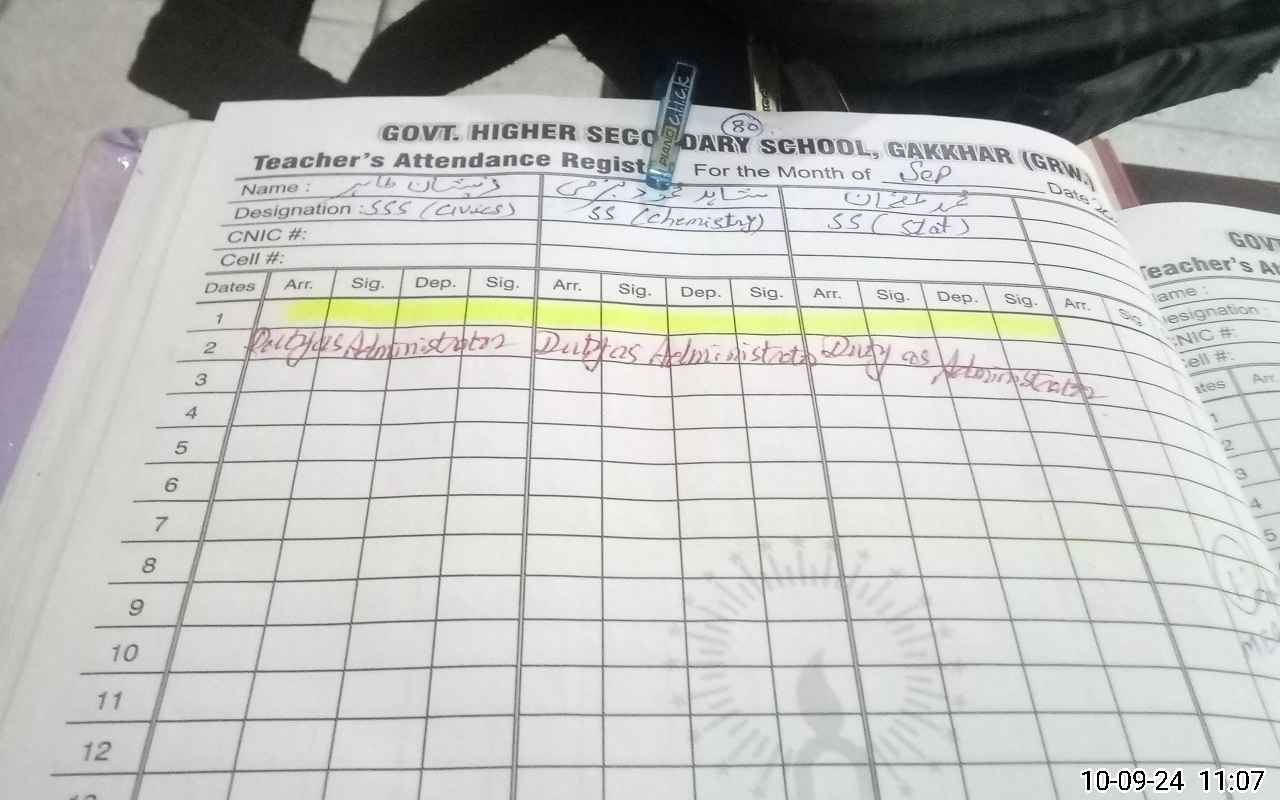 80
GOVT. HIGHER SECONDARY SCHOOL, GAKKHAR (GRW.)
Teacher's Attendance Regist For the Month of Sep Date
Name : ذیشان طاہر شاہد محمود محمد عمران
Designation : SSS (Civics) SS (Chemistry) SS (Stat)
CNIC #:
Cell #:
Dates Arr. Sig. Dep. Sig. Arr. Sig. Dep. Sig. Arr. Sig. Dep. Sig. Arr. Sig.
1
2 Duty as Administrator Duty as Administrator Duty as Administrator
3
4
5
6
7
8
9
10
11
12
13
PIANO click
GOV
Teacher's At
ame :
esignation :
NIC #:
ell #:
ates Arr.
1
2
3
4
5
10-09-24 11:07